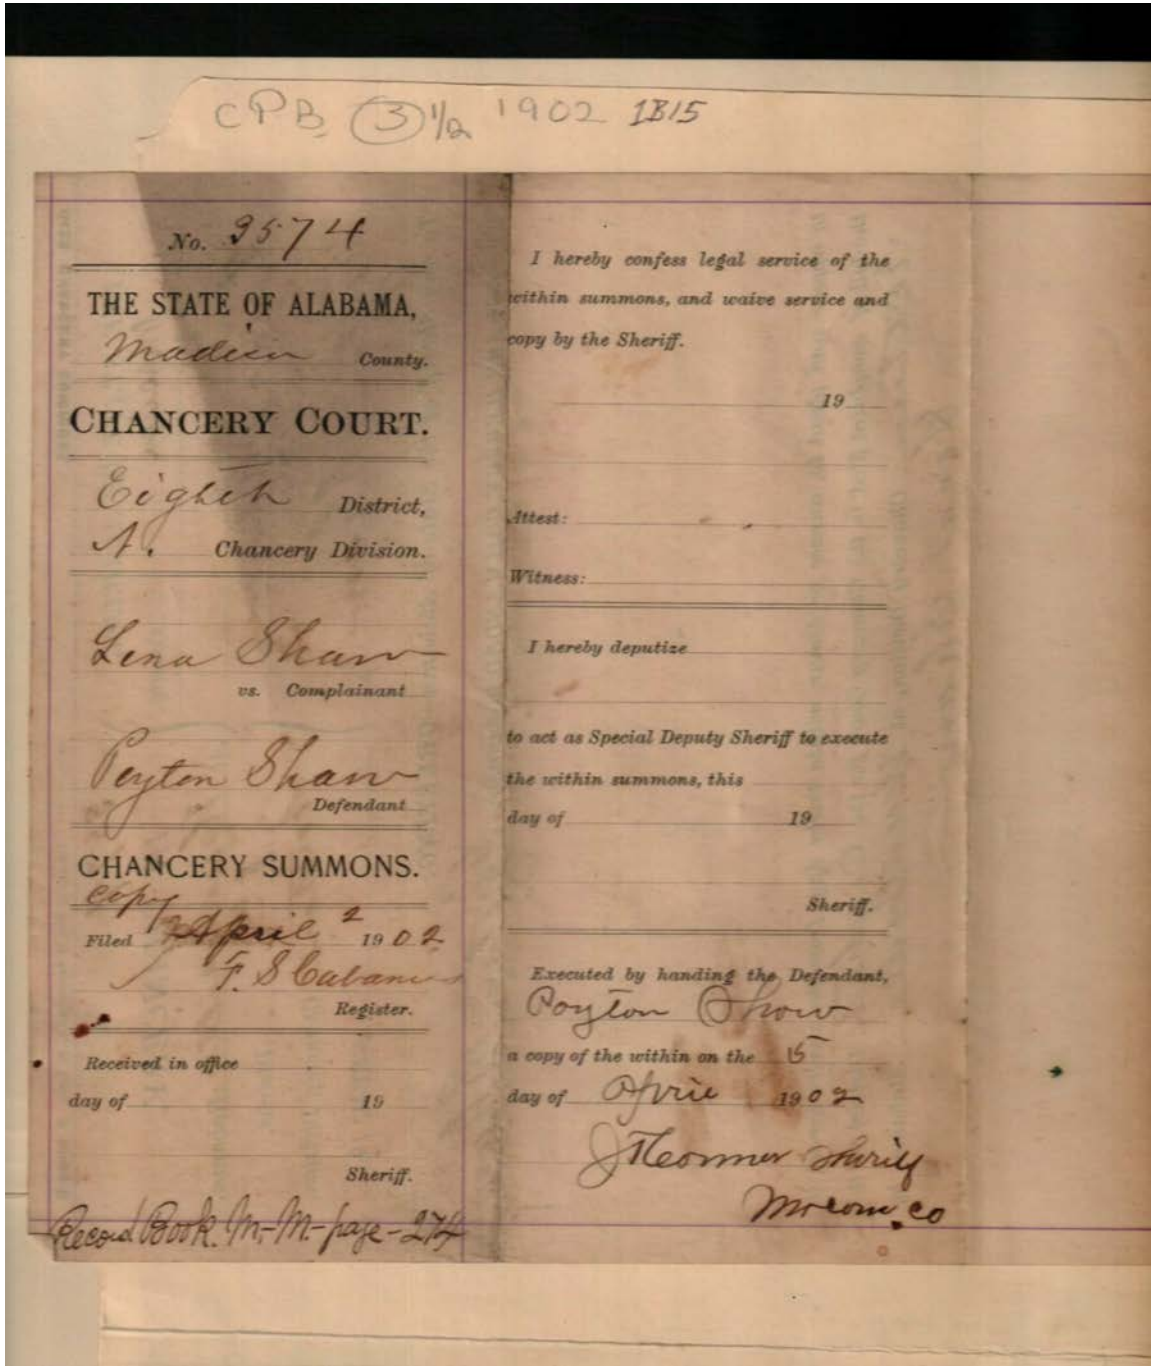 CPB (3) 1/2 1902 IB15
No. 3574
THE STATE OF ALABAMA,
Madison County.
CHANCERY COURT.
Eighth District,
N. Chancery Division.
Lena Shaw
vs. Complainant
Peyton Shaw
Defendant
CHANCERY SUMMONS.
Copy
Filed April 2 1902
F. S. Cabaniss
Register.
Received in office
day of 19
Sheriff.
Record Book. M.-M.- page - 274
I hereby confess legal service of the
within summons, and waive service and
copy by the Sheriff.
19
Attest:
Witness:
I hereby deputize
to act as Special Deputy Sheriff to execute
the within summons, this
day of 19
Sheriff.
Executed by handing the Defendant,
Poyton Show
a copy of the within on the 15
day of April 1902
Sheriff
co